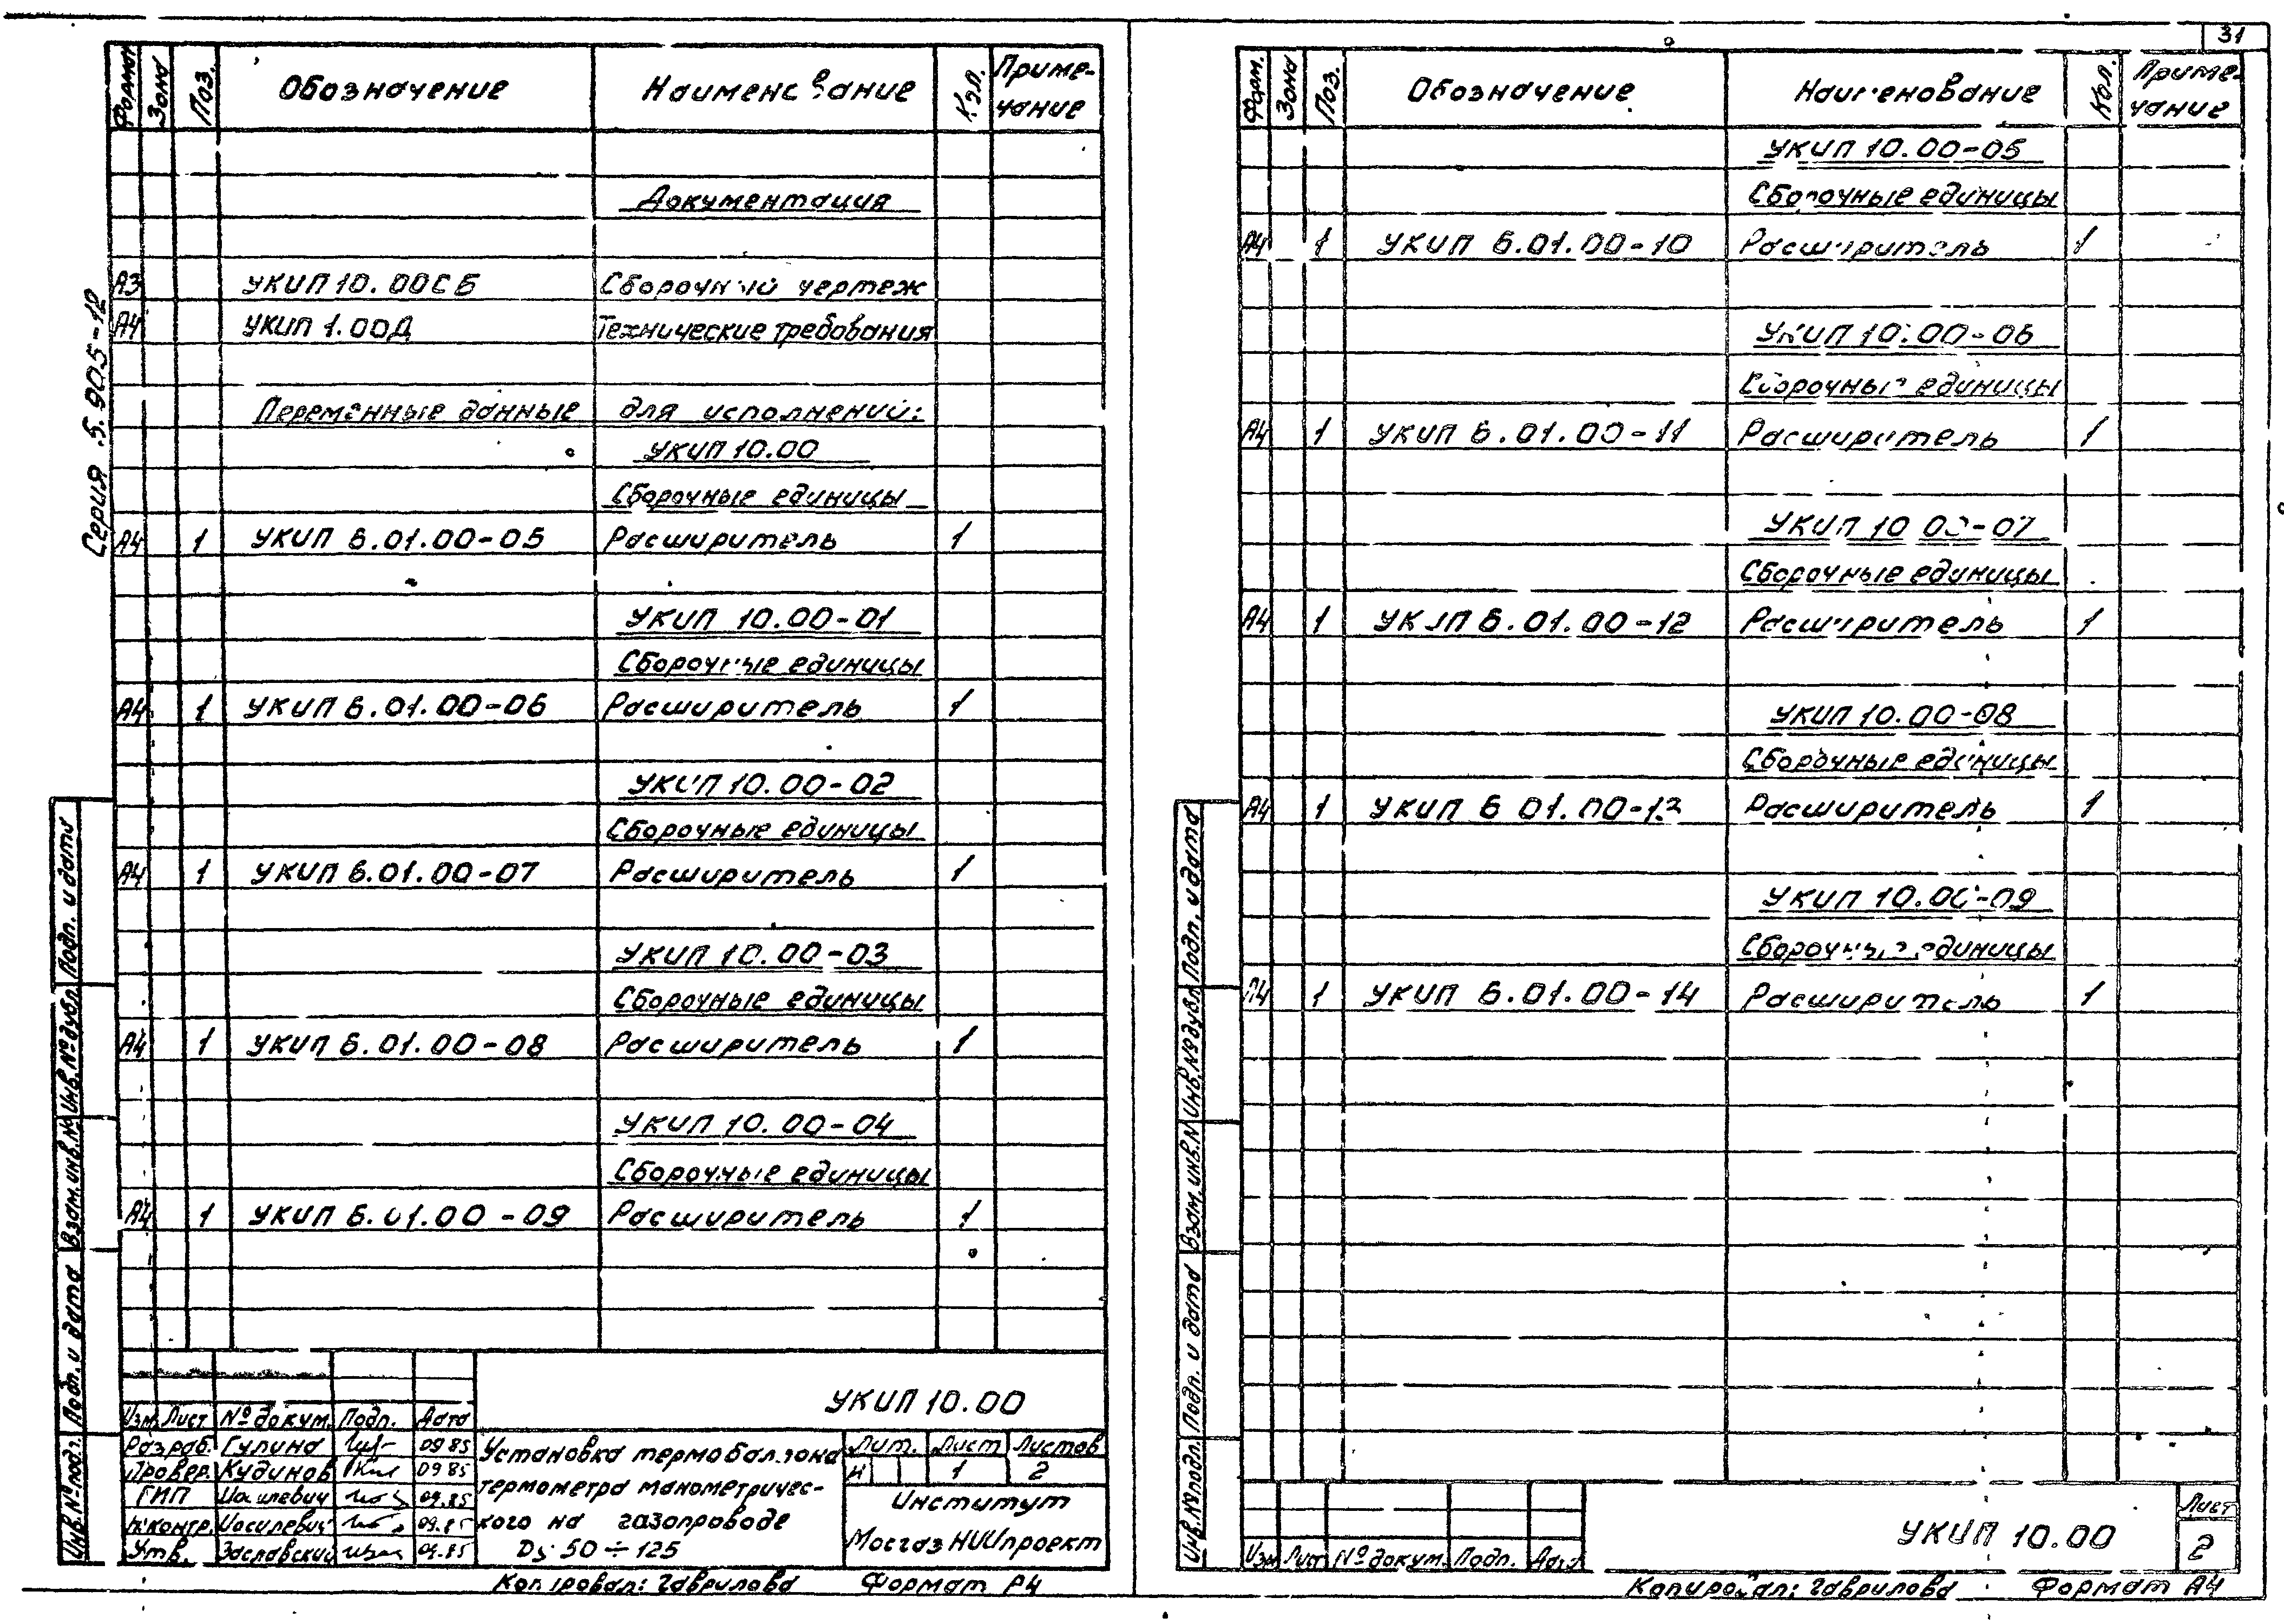 31
Серия 5.905-12
Формат Зона Поз. Обозначение Наименование Кол. Приме-
чание
Документация
А3 УКИП 10.00СБ Сборочный чертеж
А4 УКИП 1.00Д Технические требования
Переменные данные для исполнений:
УКИП 10.00
Сборочные единицы
А4 1 УКИП 6.01.00-05 Расширитель 1
УКИП 10.00-01
Сборочные единицы
А4 1 УКИП 6.01.00-06 Расширитель 1
УКИП 10.00-02
Сборочные единицы
А4 1 УКИП 6.01.00-07 Расширитель 1
УКИП 10.00-03
Сборочные единицы
А4 1 УКИП 6.01.00-08 Расширитель 1
УКИП 10.00-04
Сборочные единицы
А4 1 УКИП 6.01.00-09 Расширитель 1
Инв.№подл. Подп. и дата Взам.инв.№ Инв.№дубл. Подп. и дата
УКИП 10.00
Изм. Лист №докум. Подп. Дата
Разраб. Гулина 09.85
Провер. Кудинов 09.85
ГИП Иосилевич 09.85
Н.контр. Иосилевич 09.85
Утв. Заславский 09.85
Установка термобаллона
термометра манометричес-
кого на газопроводе
Ду 50÷125
Лит. Лист Листов
И 1 2
Институт
МосгазНИИпроект
Копировал: Гаврилова Формат А4
Форм. Зона Поз. Обозначение Наименование Кол. Приме-
чание
УКИП 10.00-05
Сборочные единицы
А4 1 УКИП 6.01.00-10 Расширитель 1
УКИП 10.00-06
Сборочные единицы
А4 1 УКИП 6.01.00-11 Расширитель 1
УКИП 10.00-07
Сборочные единицы
А4 1 УКИП 6.01.00-12 Расширитель 1
УКИП 10.00-08
Сборочные единицы
А4 1 УКИП 6.01.00-13 Расширитель 1
УКИП 10.00-09
Сборочные единицы
А4 1 УКИП 6.01.00-14 Расширитель 1
Инв.№подл. Подп. и дата Взам.инв.№ Инв.№дубл. Подп. и дата
Изм. Лист №докум. Подп. Дата
УКИП 10.00
Лист
2
Копировал: Гаврилова Формат А4